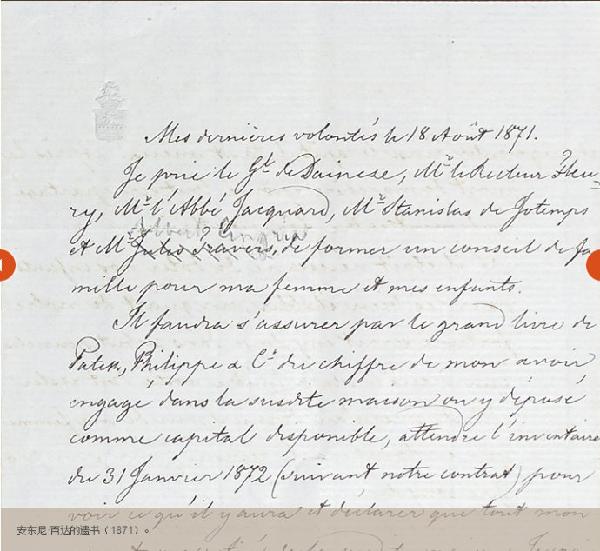 Mes dernières volontés le 18 Août 1871.
Je prie le Gl de, Mr le Recteur Fleu-
ry, Mr l'Abbé Jacquard, Mr Stanislas de Jotemps
Albert
et Mr Jules, de former un conseil de fa
mille pour ma femme et mes enfants.
Il faudra s'assurer par le grand livre de
Patek, Philippe & Ce du chiffre de mon avoir
engagé dans la susdite maison ou y déposé
comme capital disponible, attendre l'inventaire
du 31 Janvier 1872 (suivant notre contrat) pour
voir ce qu'il y aura et déclarer que tout mon
安东尼·百达的遗书（1871）。